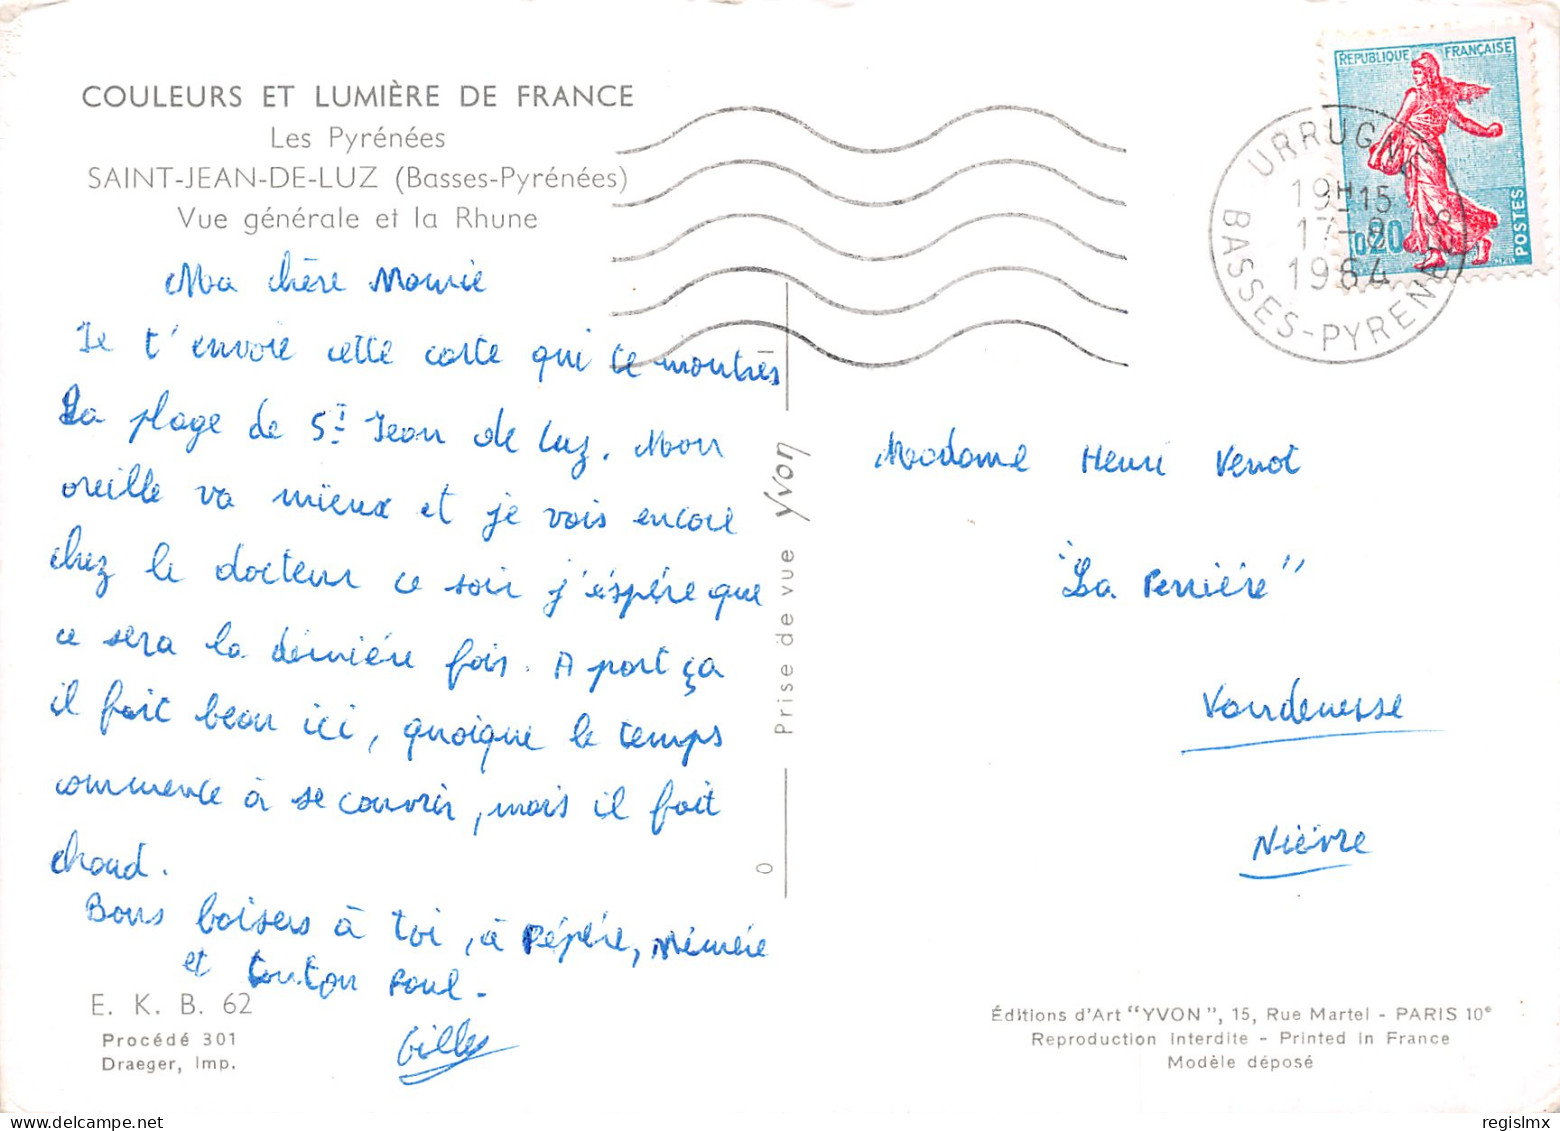 COULEURS ET LUMIÈRE DE FRANCE
Les Pyrénées
SAINT-JEAN-DE-LUZ (Basses-Pyrénées)
Vue générale et la Rhune
Ma chère Mamie
Je t'envoie cette carte qui te montres
La plage de St Jean de Luz. Mon
oreille va mieux et je vois encore
chez le docteur ce soir j'éspére que
ce sera la dérniére fois. A part ça
il fait beau ici, quoique le temps
commence à se couvrir, mais il fait
chaud.
Bons baisers à toi, à Pépére, Mémére
et tonton Paul.
Gilles
E. K. B. 62
Procédé 301
Draeger, Imp.
Prise de vue Yvon
0
REPUBLIQUE FRANÇAISE
0,20
POSTES
URRUGNE
19H15
17-8
1964
BASSES-PYRENEES
Madame Henri Venot
"La Perriére"
Vandenesse
Nièvre
Éditions d'Art "YVON", 15, Rue Martel - PARIS 10e
Reproduction interdite - Printed in France
Modèle déposé
regislmx